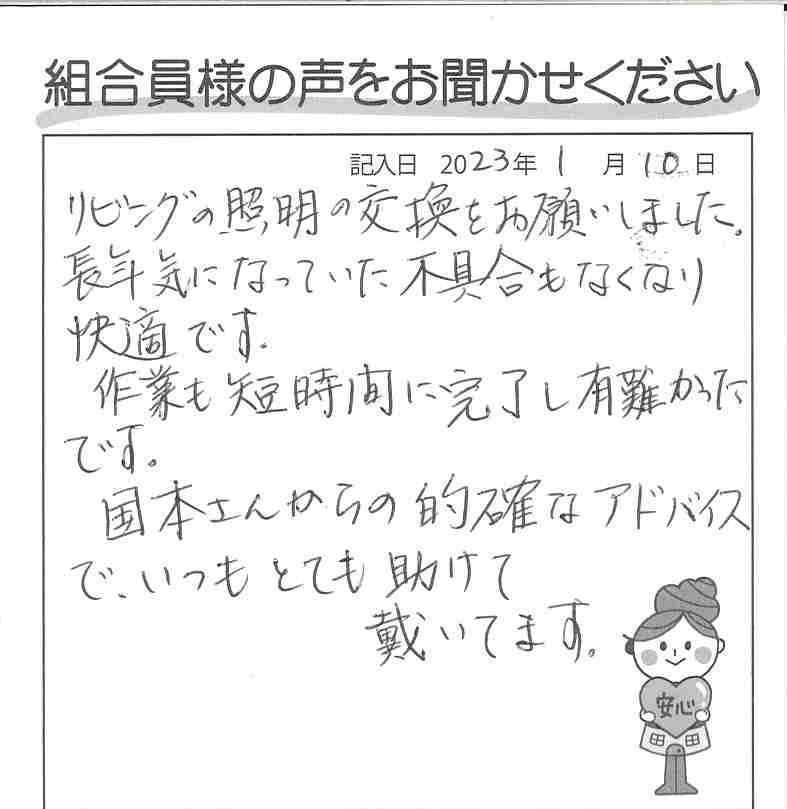 組合員様の声をお聞かせください
記入日 2023年 1 月 10 日
リビングの照明の交換をお願いしました。
長年気になっていた不具合もなくなり
快適です。
作業も短時間に完了し有難かった
です。
国本さんからの的確なアドバイス
で、いつもとても助けて
戴いてます。
安心